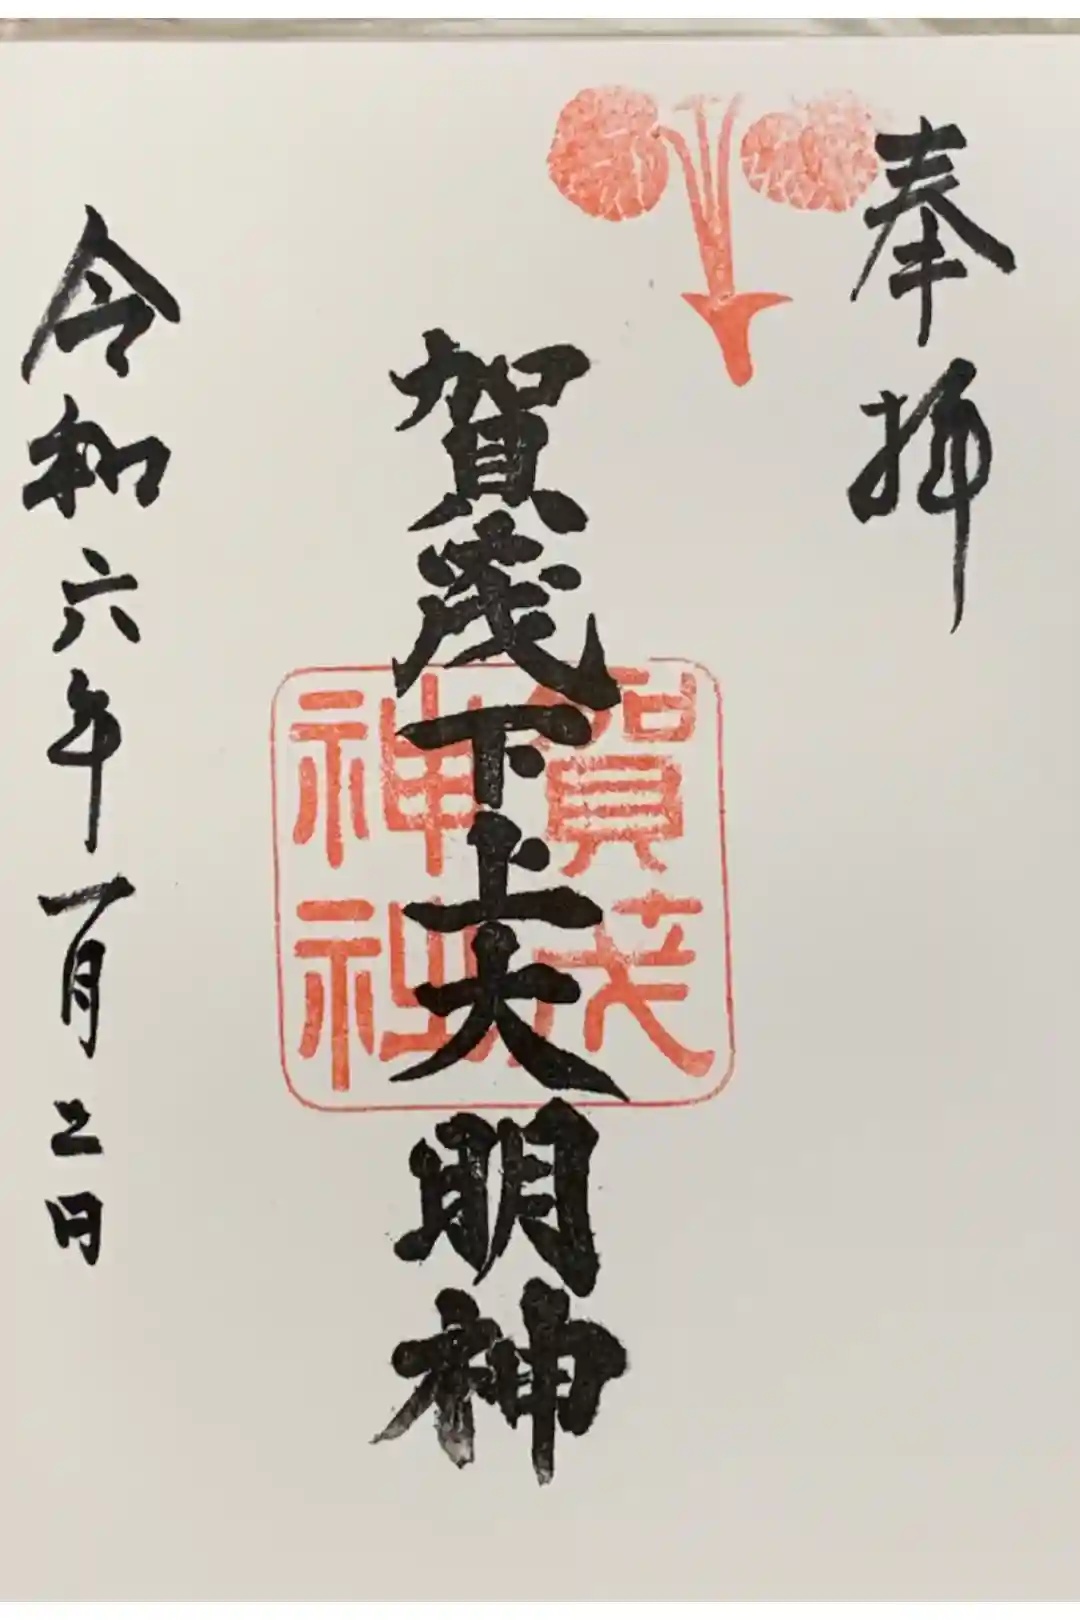 奉拝
賀茂下上大明神
賀茂
神社
令和六年一月二日